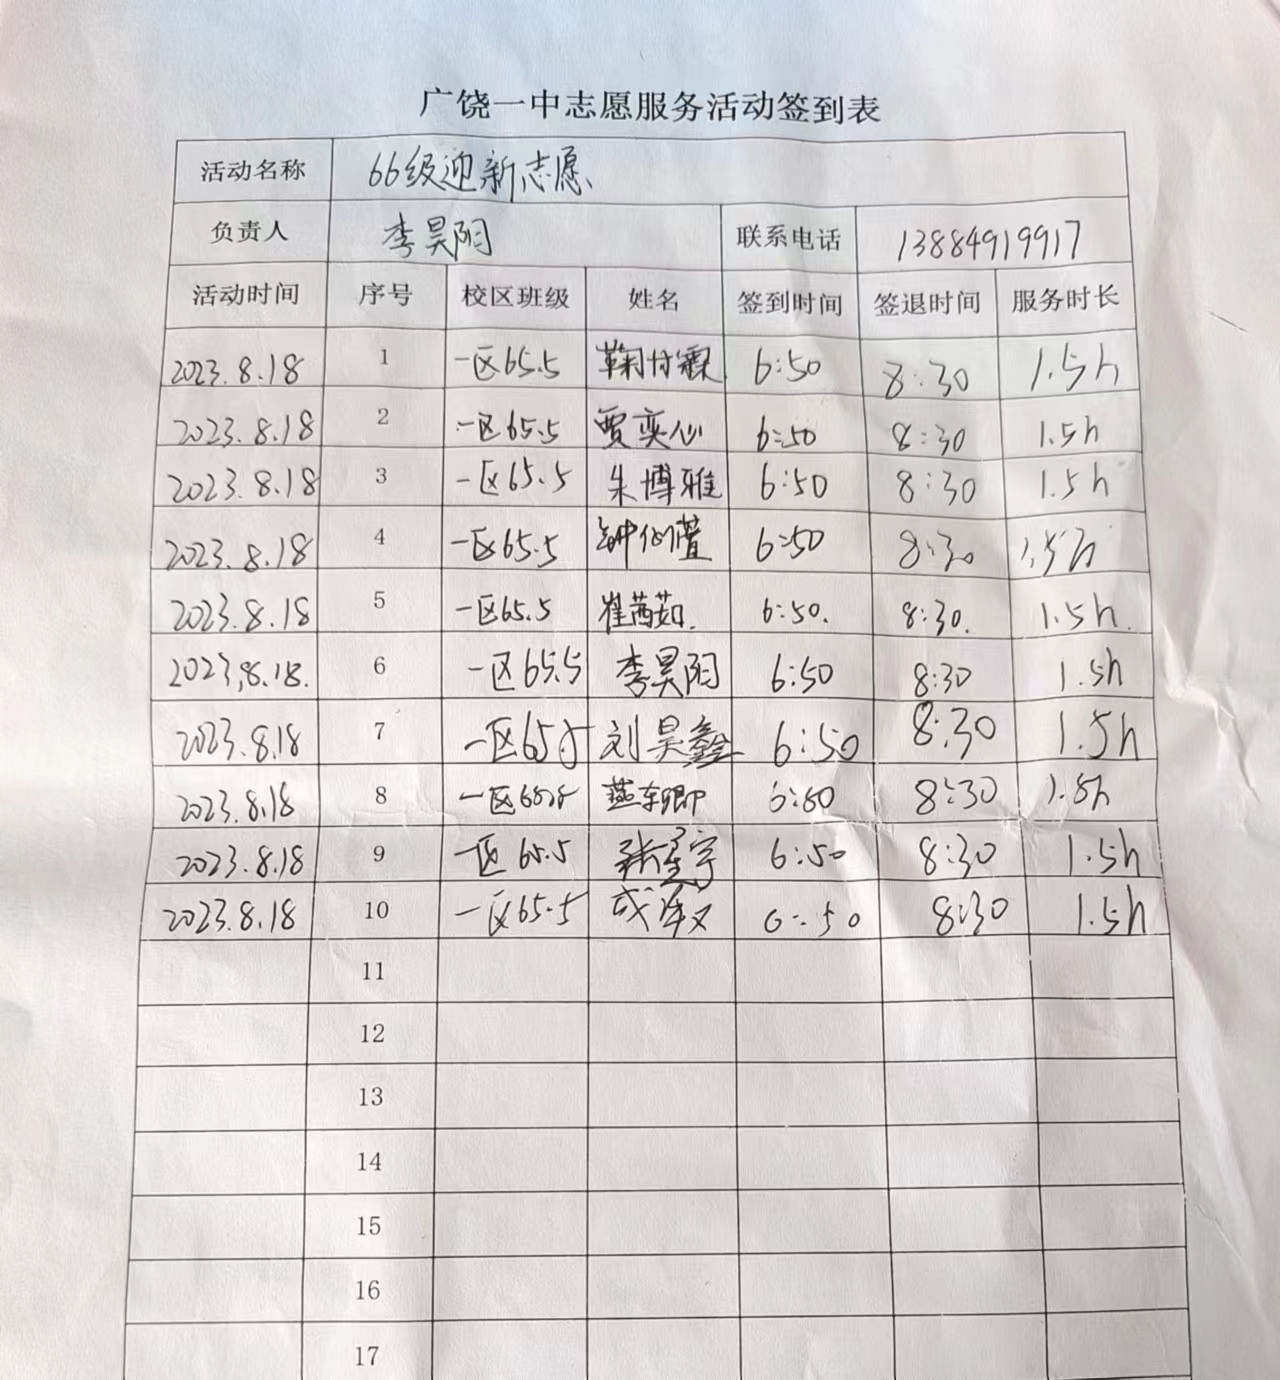 广饶一中志愿服务活动签到表
活动名称 66级迎新志愿
负责人 李昊阳 联系电话 13884919917
活动时间 序号 校区班级 姓名 签到时间 签退时间 服务时长
2023.8.18 1 一区65.5 鞠甘霖 6:50 8:30 1.5h
2023.8.18 2 一区65.5 贾奕心 6:50 8:30 1.5h
2023.8.18 3 一区65.5 朱博雅 6:50 8:30 1.5h
2023.8.18 4 一区65.5 钟似萱 6:50 8:30 1.5h
2023.8.18 5 一区65.5 崔茜茹. 6:50. 8:30. 1.5h.
2023.8.18. 6 一区65.5 李昊阳 6:50 8:30 1.5h
2023.8.18 7 一区65.5 刘昊鑫 6:50 8:30 1.5h
2023.8.18 8 一区65.5 燕东卿 6:50 8:30 1.5h
2023.8.18 9 一区65.5 张星宇 6:50 8:30 1.5h
2023.8.18 10 一区65.5 6:50 8:30 1.5h
11
12
13
14
15
16
17